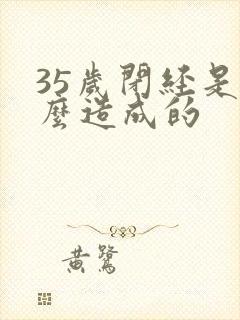 35歲閉經是
麼造成的
黄鷺